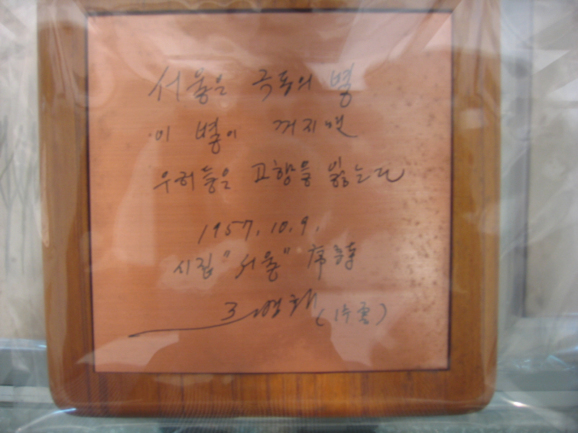 서울은 극동의 별
이 별이 꺼지면
우리들은 고향을 잃는다
1957. 10. 9.
시집 "서울" 序詩